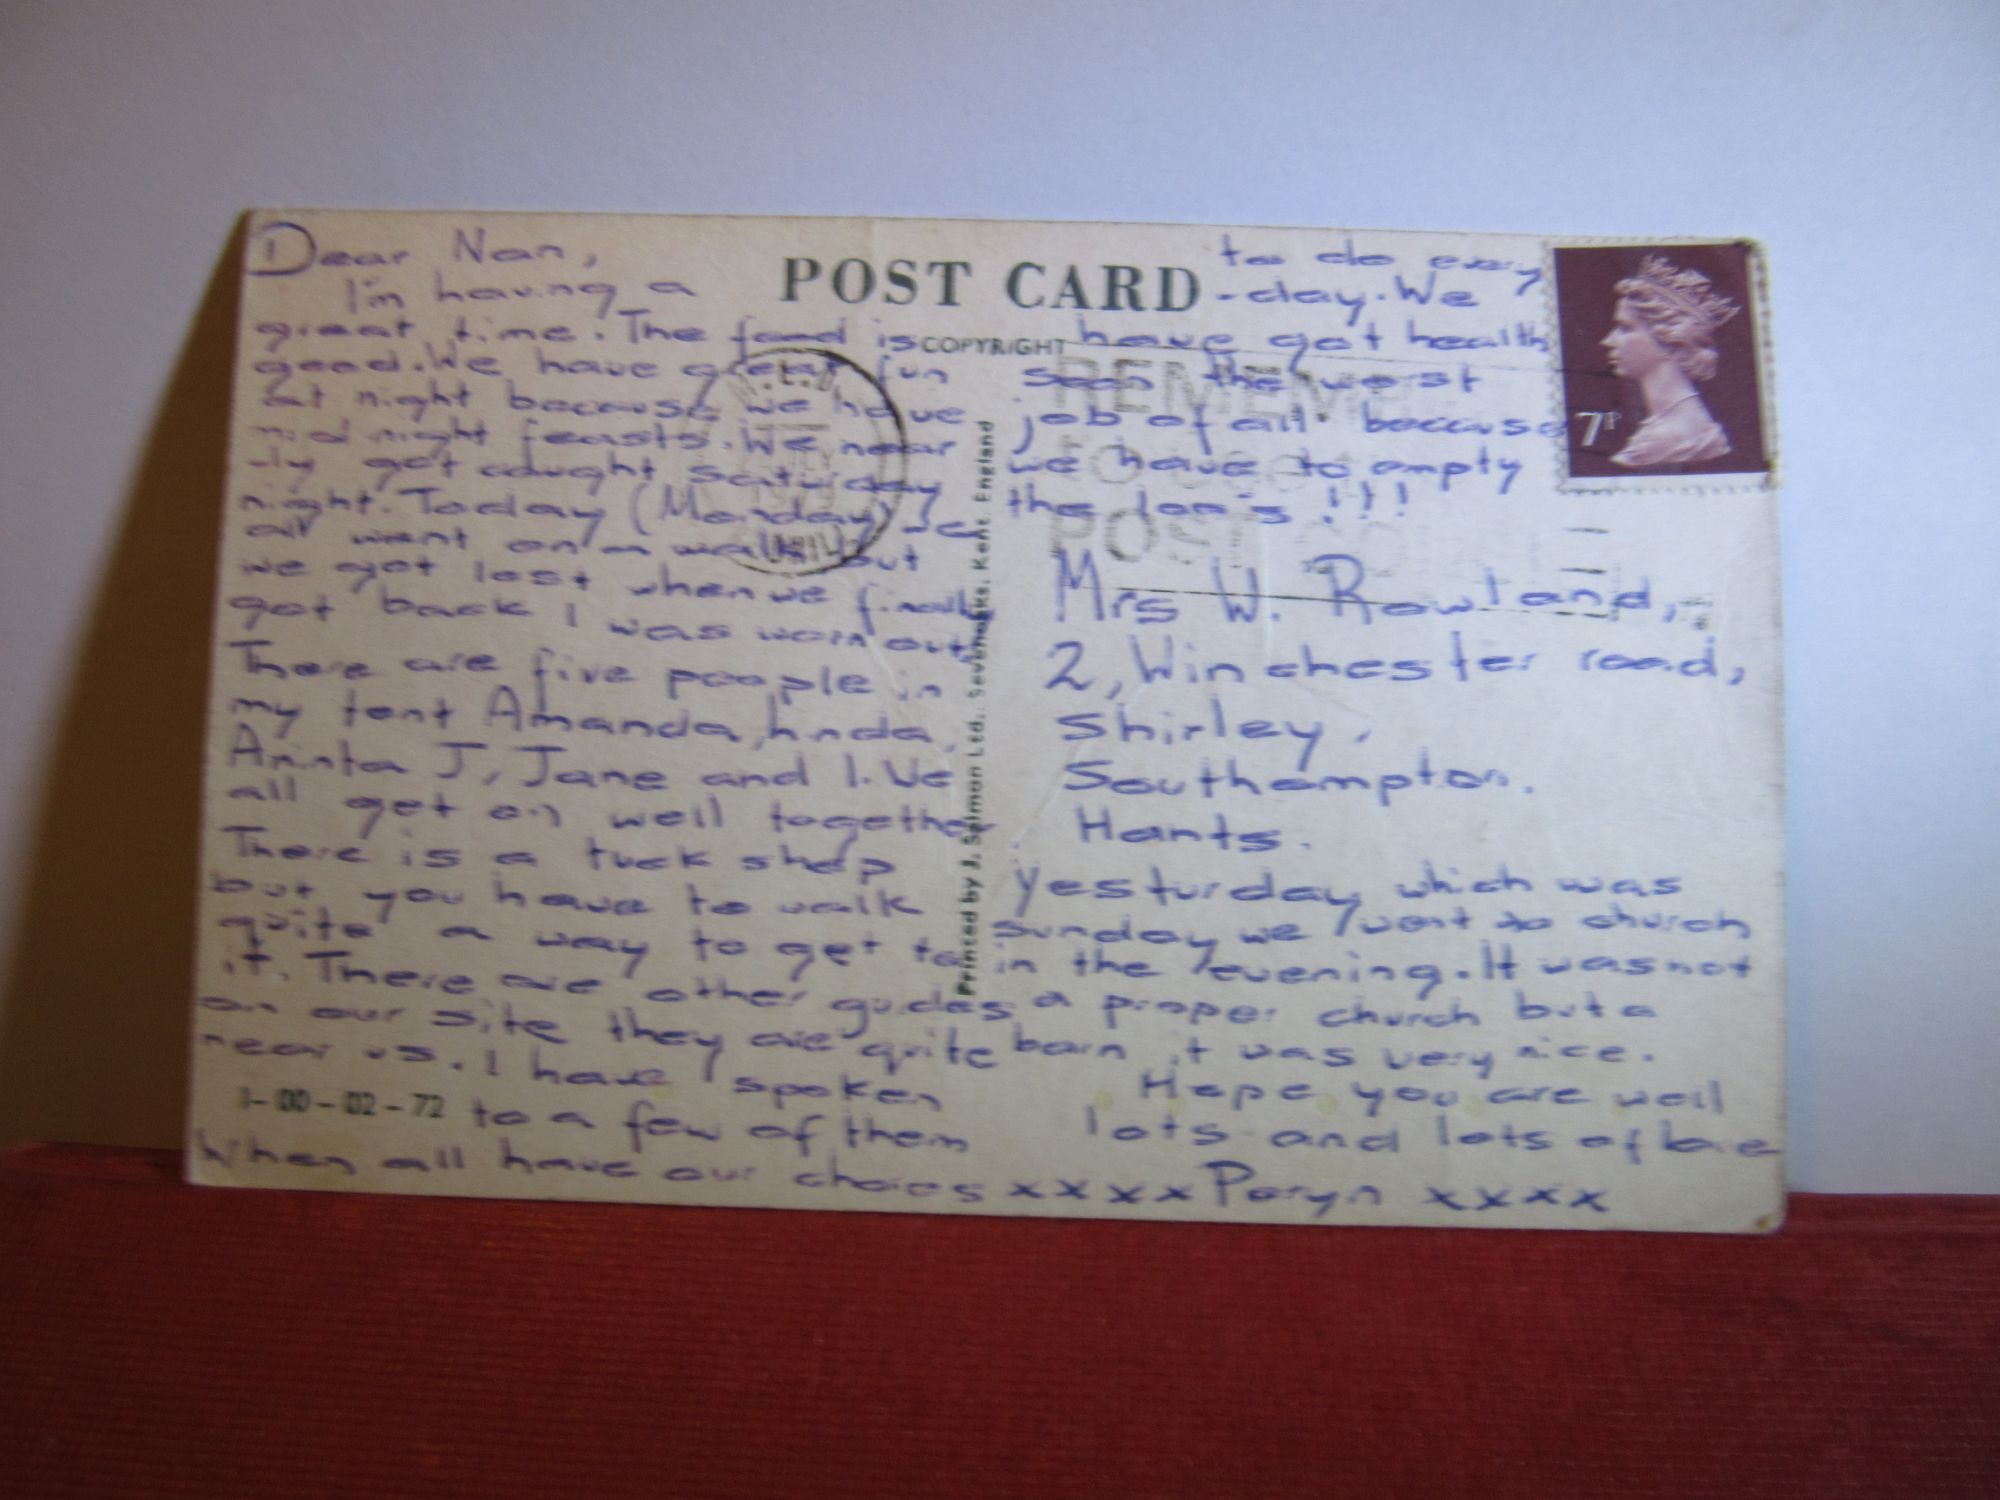 Dear Nan,
I'm having a
great time. The food is
good. We have great fun
at night because we have
mid night feasts. We near
-ly got caught Saturday
night. Today (Monday) we
all went on a walk but
we got lost when we finally
got back I was worn out.
There are five people in
my tent Amanda, Linda,
J, Jane and I. We
all get on well together
There is a tuck shop
but you have to walk
quite a way to get to
it. There are other guides
on our site they are quite
near us. I have spoken
to a few of them
When all have our choies
POST CARD
COPYRIGHT
to do every
-day. We
have got health
soon the worst
job of all because
we have to empty
the loo's !!!
REMEM
TO
POST
7P
Mrs W. Rowland,
2, Winchester road,
Shirley,
Southampton.
Hants.
Yesturday which was
Sunday we went to church
in the evening. It was not
a proper church but a
barn it was very nice.
Hope you are well
lots and lots of love
xxxx Peryn xxxx
Printed by J. Salmon Ltd., Sevenoaks, Kent, England
1-00-02-72